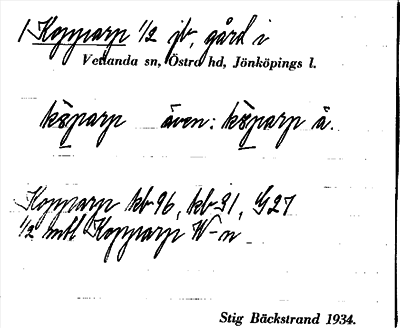 1 Kopparp 1/2 jb, gård i
Vetlanda sn, Östra hd, Jönköpings l.
kåparp även: kåparp ä.
Kopparp kb 96, kb 31, G27
1/2 mtl Kopparp W-n
Stig Bäckstrand 1934.